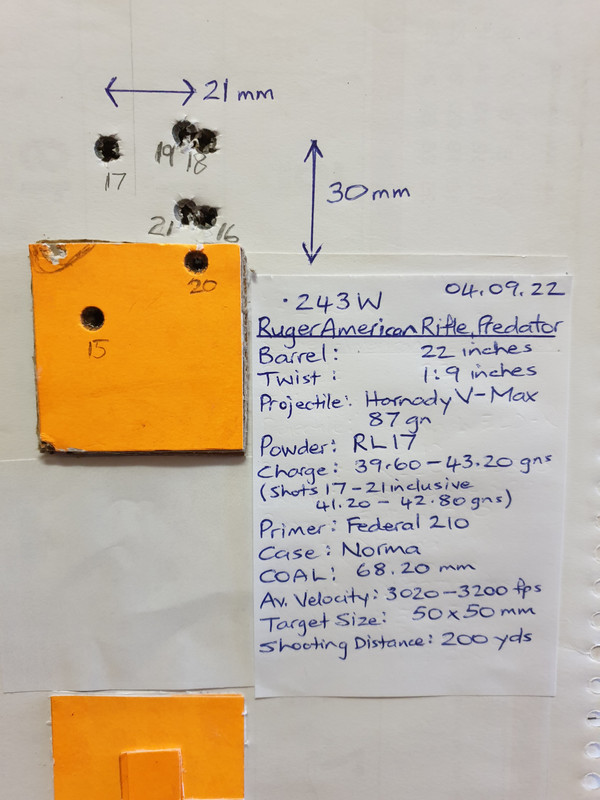 21 mm
19 18
17
30mm
21 16
20
15
.243W 04.09.22
Ruger American Rifle, Predator
Barrel: 22 inches
Twist : 1:9 inches
Projectile: Hornady V-Max
87gn
Powder: RL17
Charge: 39.60-43.20 gns
(Shots 17-21 inclusive
41.20 - 42.80 gns)
Primer: Federal 210
Case: Norma
COAL: 68.20 mm
Av. Velocity: 3020-3200 fps
Target Size: 50x50 mm
Shooting Distance: 200 yds